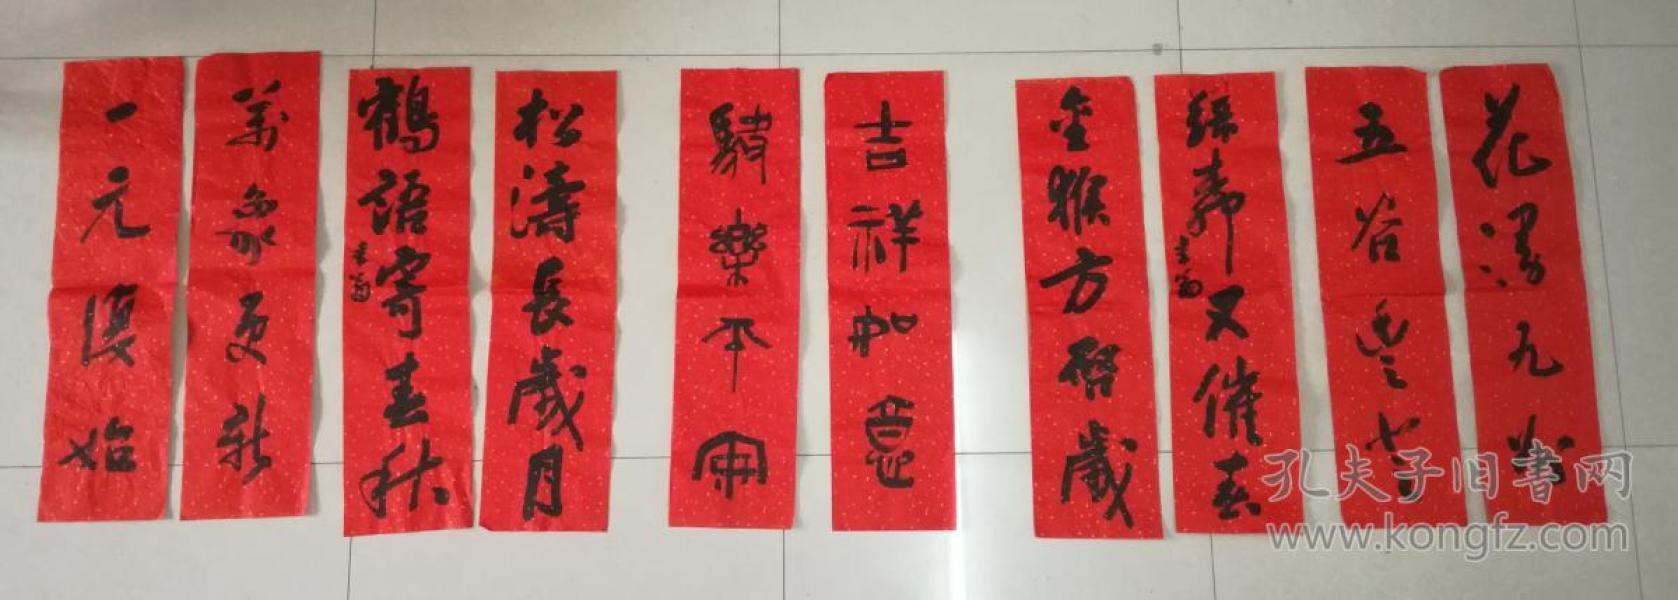 一元復始
萬象更新
鶴語寄春秋
松濤長歲月
樂平安
吉祥如意
金猴方啓歲
又催春
五谷豐登
花九州
孔夫子旧書网
www.kongfz.com